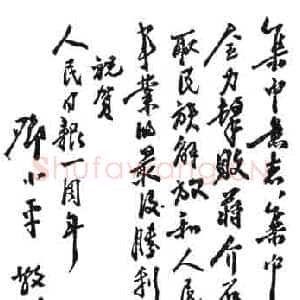 集中意志,集中
全力击败蒋介石
取民族解放和人民
事业的最后胜利
祝贺
人民日报一周年
邓小平 敬
Shufawang.CN